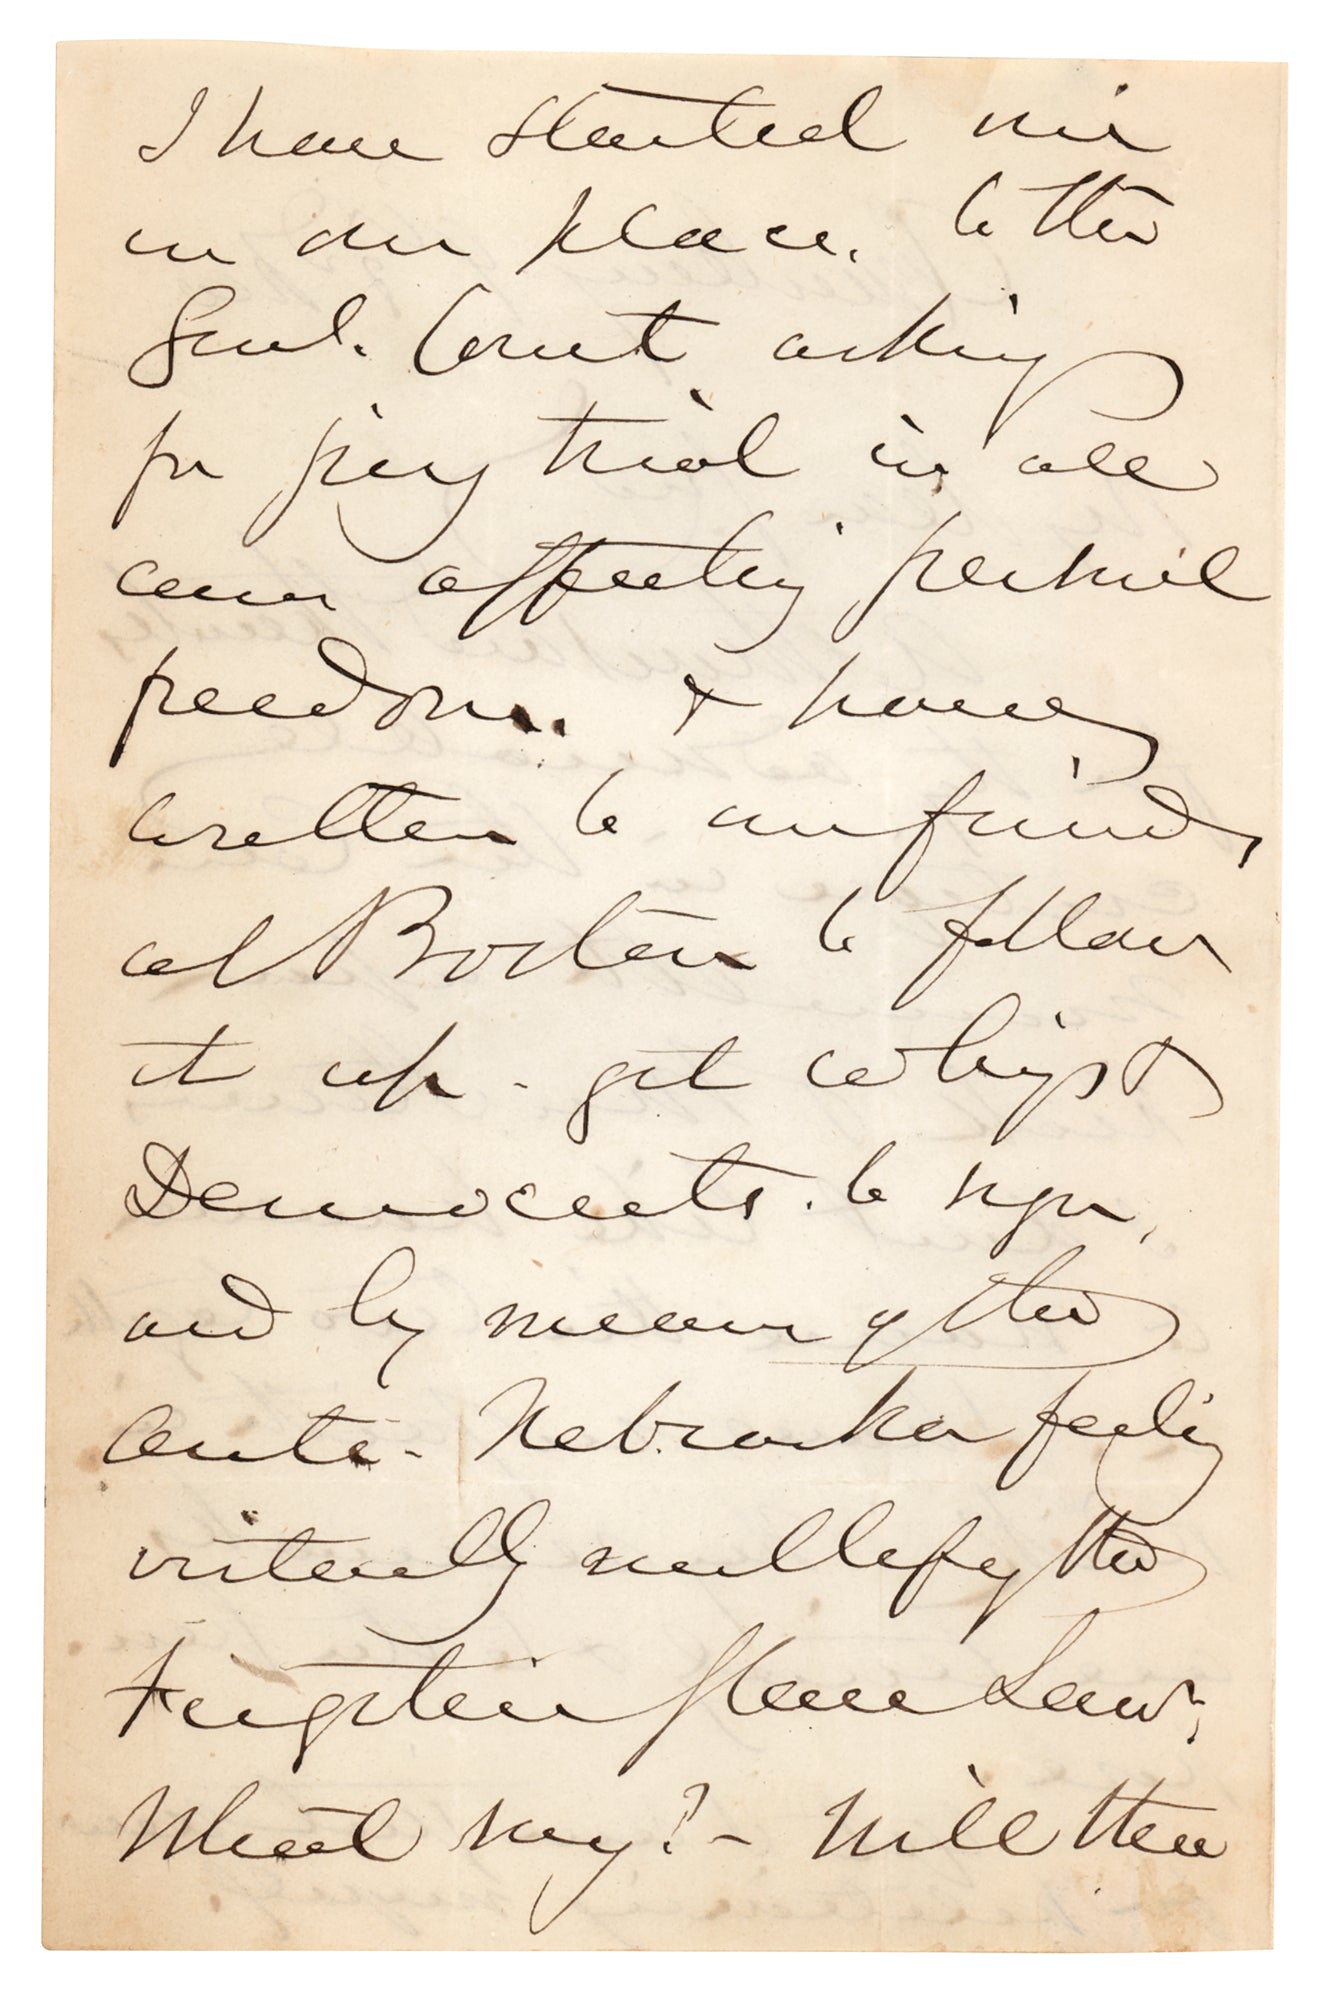 I have started one
in our place. to the
Genl. Court asking
for jury trial in all
cases affecting personal
freedom. & have
written to our friends
at Boston to follow
it up - get whigs &
Democrats. to sign,
and by means of the
Anti-Nebraska feeling
virtually nullify the
Fugitive Slave Law.
What say? - Will the